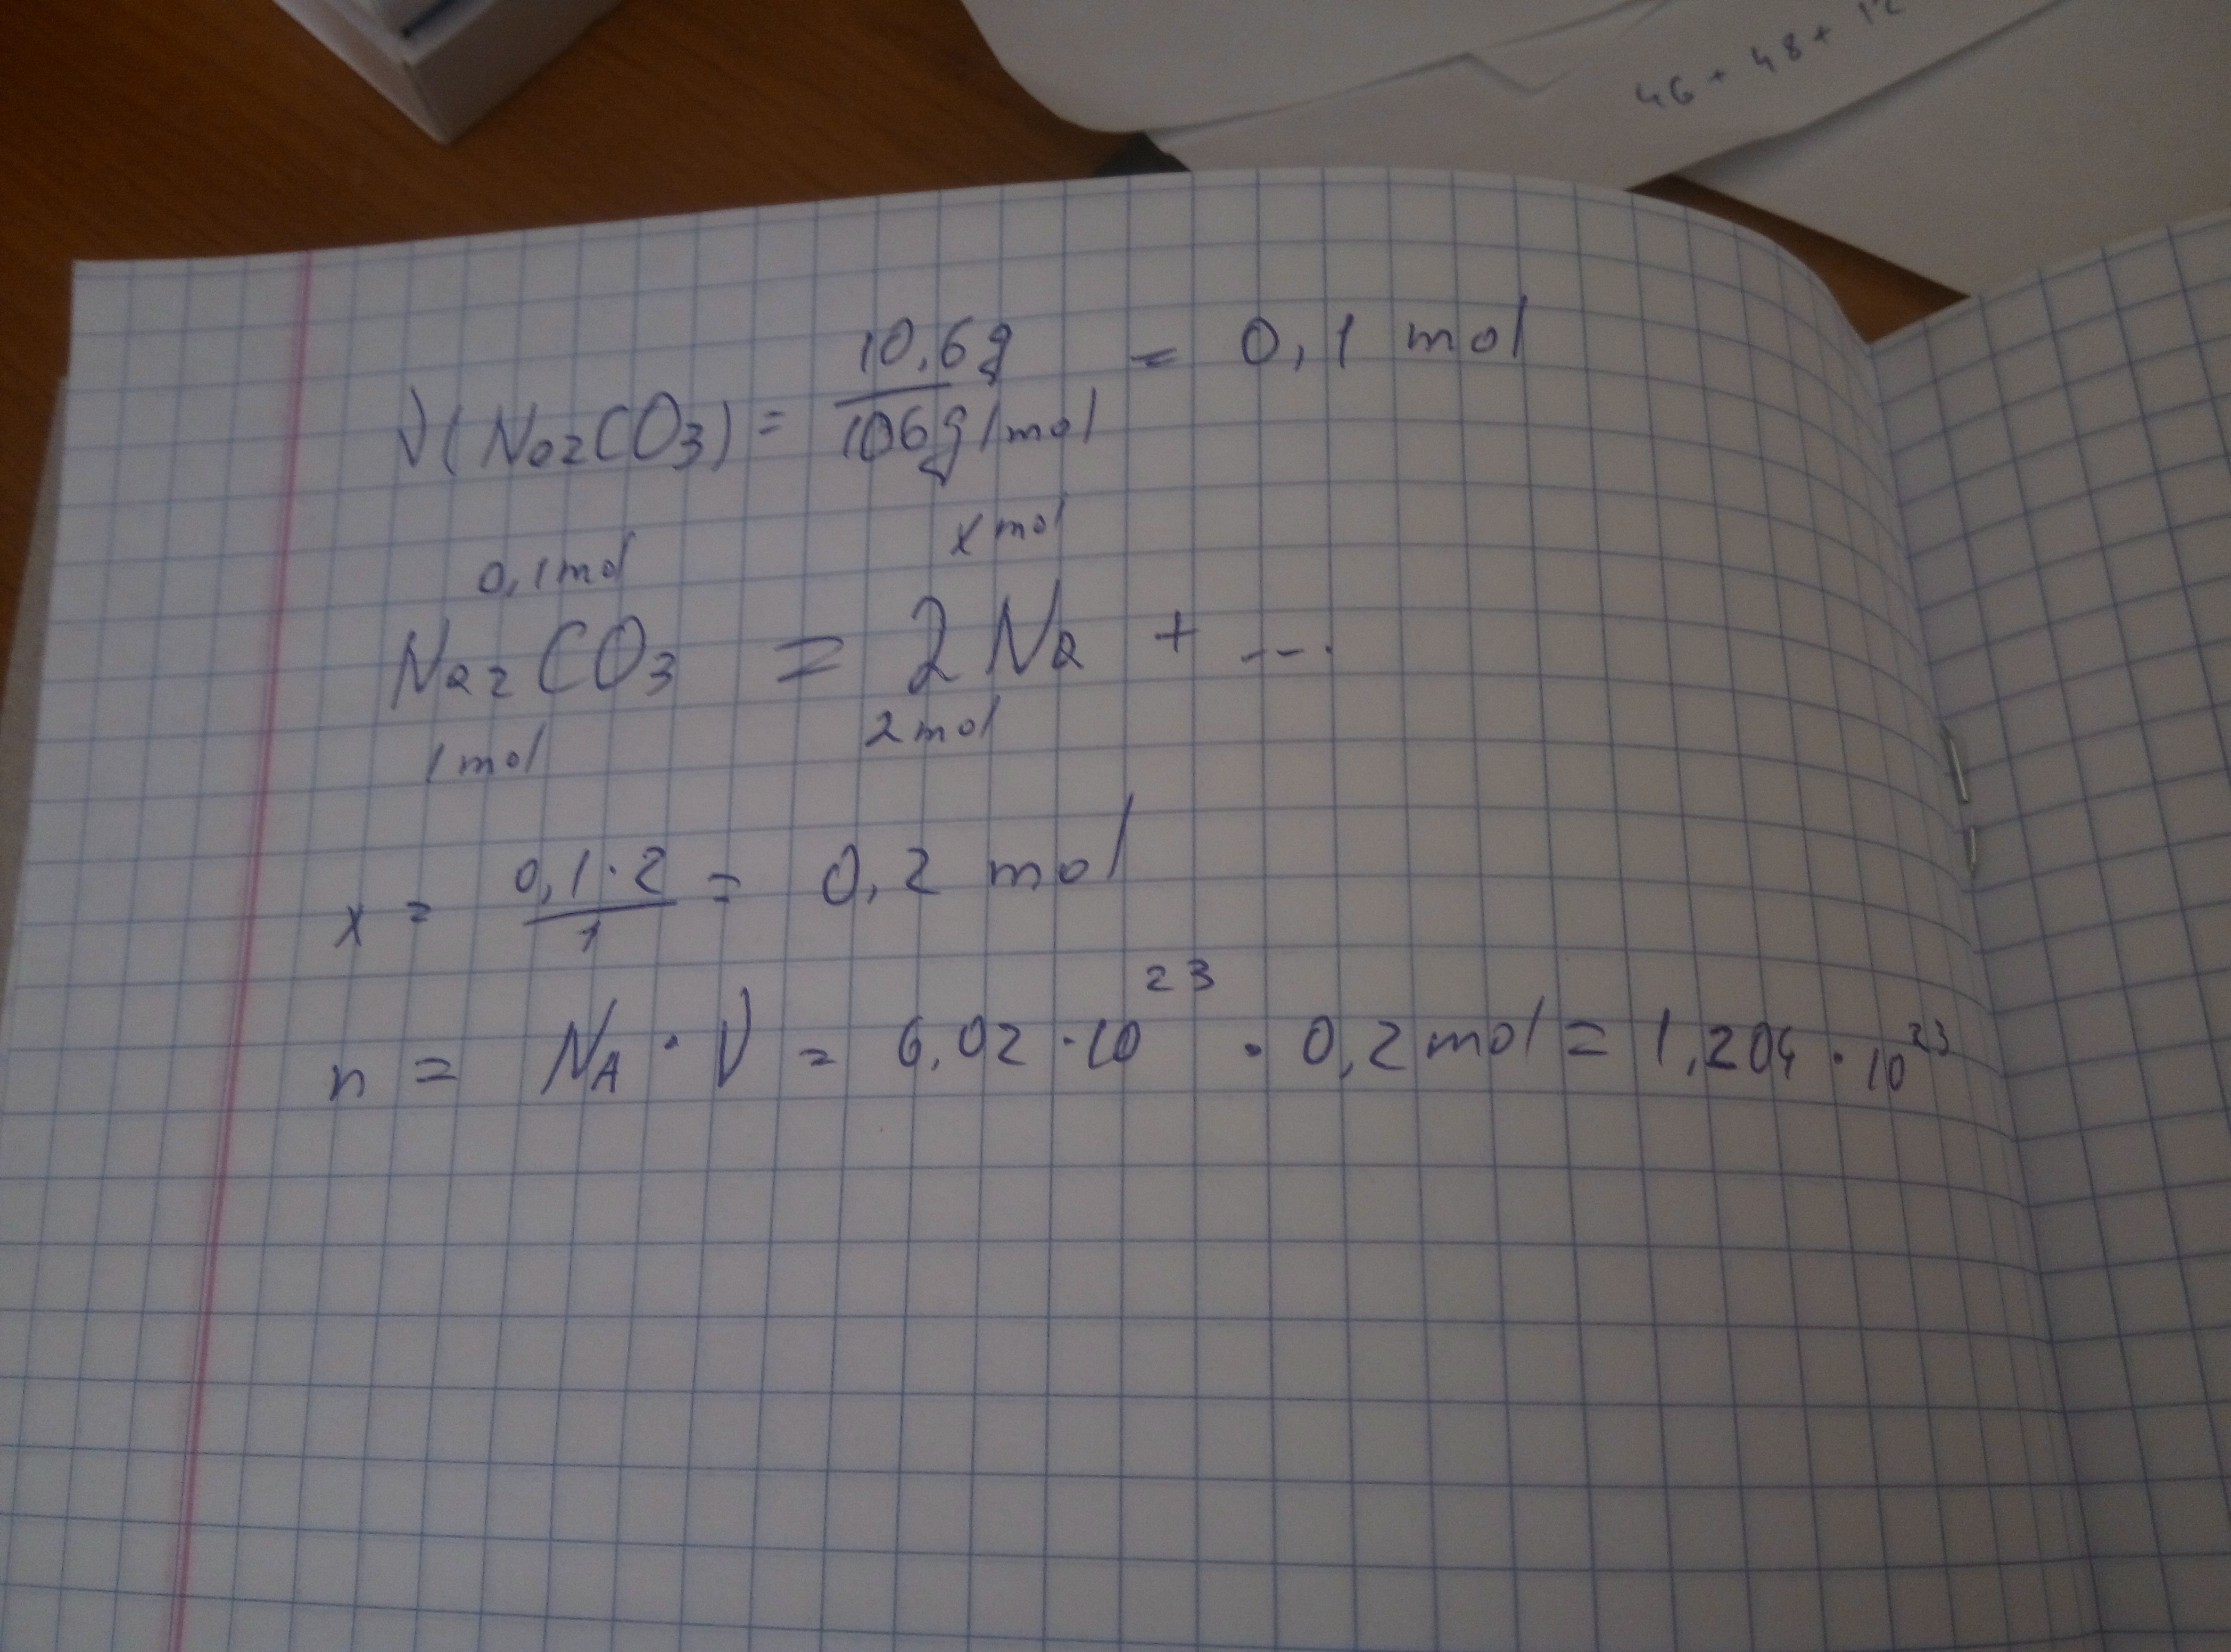 46 + 48 + 12
ν(Na₂CO₃) = 10,6g / 106g/mol = 0,1 mol
0,1mol x mol
Na₂CO₃ = 2Na + ...
1mol 2mol
x = 0,1·2 / 1 = 0,2 mol
n = N_A · ν = 6,02 · 10²³ · 0,2 mol = 1,204 · 10²³